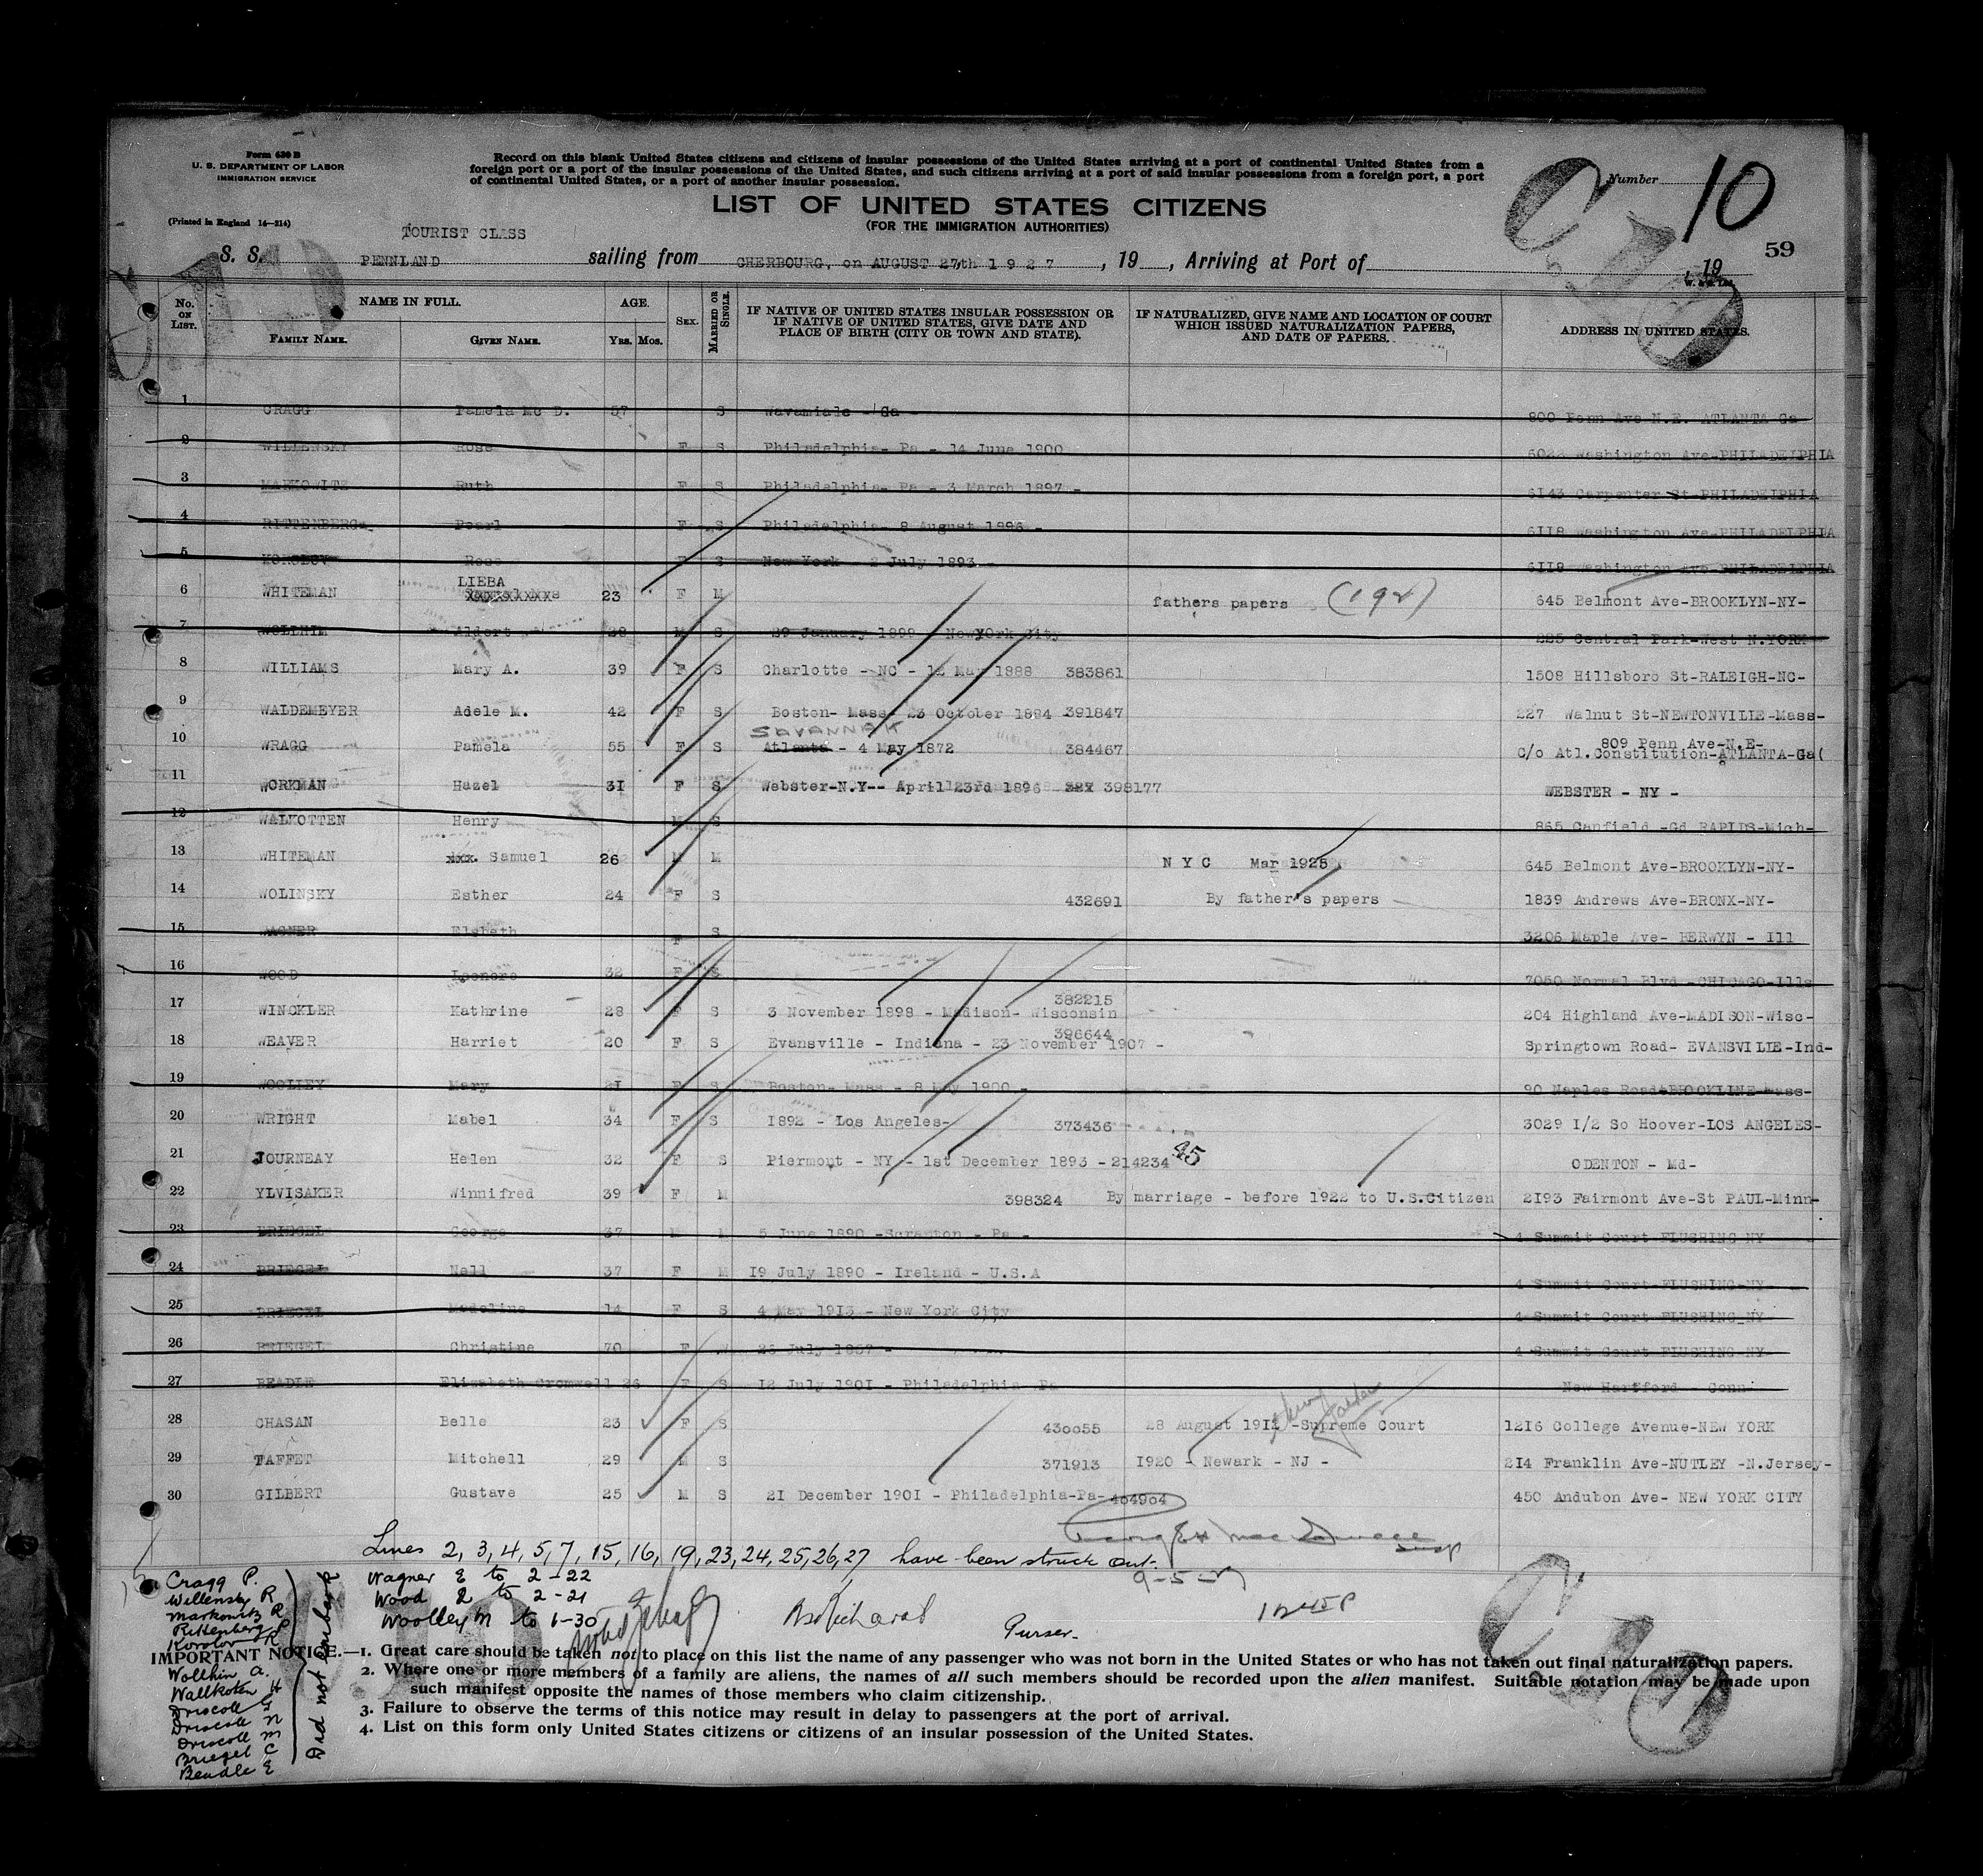 Form 630 B
U. S. DEPARTMENT OF LABOR
IMMIGRATION SERVICE
(Printed in England 14—214)
Record on this blank United States citizens and citizens of insular possessions of the United States arriving at a port of continental United States from a
foreign port or a port of the insular possessions of the United States, and such citizens arriving at a port of said insular possessions from a foreign port, a port
of continental United States, or a port of another insular possession.
Number 10
LIST OF UNITED STATES CITIZENS
(FOR THE IMMIGRATION AUTHORITIES)
59
TOURIST CLASS
S. S. PENNLAND sailing from CHERBOURG, on AUGUST 27th 1927, 19 , Arriving at Port of , 19
No. ON LIST. NAME IN FULL. AGE. SEX. MARRIED OR SINGLE. IF NATIVE OF UNITED STATES INSULAR POSSESSION OR IF NATIVE OF UNITED STATES, GIVE DATE AND PLACE OF BIRTH (CITY OR TOWN AND STATE). IF NATURALIZED, GIVE NAME AND LOCATION OF COURT WHICH ISSUED NATURALIZATION PAPERS, AND DATE OF PAPERS. ADDRESS IN UNITED STATES.
FAMILY NAME. GIVEN NAME. Yrs. Mos.
1 CRAGG Pamela Mc D. 57 S Ga 800 Penn Ave N.E. ATLANTA Ga
2 WILLENSKY Rose F S Philadelphia- Pa - 14 June 1900 Washington Ave-PHILADELPHIA
3 MARKOWITZ Ruth F S Philadelphia- Pa - 3 March 1897 - 6143 Carpenter St-PHILADELPHIA
4 RITTENBERG Pearl F S Philadelphia- 8 August 1896 - 6118 Washington Ave-PHILADELPHIA
5 KOROLOV Rose F S New York - 2 July 1893 - 6118 Washington Ave-PHILADELPHIA
6 WHITEMAN LIEBA 23 F M fathers papers 645 Belmont Ave-BROOKLYN-NY-
7 WOLLHIM 28 M S 29 January 1899 - NewYork City 225 Central Park-West N.YORK
8 WILLIAMS Mary A. 39 F S Charlotte - NC - 12 May 1888 383861 1508 Hillsboro St-RALEIGH-NC-
9 WALDEMEYER Adele M. 42 F S Boston- Mass- 23 October 1884 391847 227 Walnut St-NEWTONVILLE-Mass-
SAVANNAH
10 WRAGG Pamela 55 F S Atlanta - 4 May 1872 384467 809 Penn Ave-N.E-
C/o Atl.Constitution-ATLANTA-Ga(
11 WORKMAN Hazel 31 F S Webster-N.Y-- April 23rd 1896 398177 WEBSTER - NY -
12 WALKOTTEN Henry M S 865 Canfield -Gd RAPIDS-Mich-
13 WHITEMAN xxx. Samuel 26 M M N Y C Mar 1925 645 Belmont Ave-BROOKLYN-NY-
14 WOLINSKY Esther 24 F S 432691 By father's papers 1839 Andrews Ave-BRONX-NY-
15 WAGNER Elsbeth F S 3206 Maple Ave- BERWYN - Ill
16 WOOD Leonore 32 F S 7050 Normal Blvd -CHICAGO-Ills
17 WINCKLER Kathrine 28 F S 3 November 1898 - Madison- Wisconsin 382215 204 Highland Ave-MADISON-Wisc-
18 WEAVER Harriet 20 F S Evansville - Indiana - 23 November 1907 - 396644 Springtown Road- EVANSVILLE-Ind-
19 WOOLLEY Mary 21 F S Boston- Mass - 8 May 1900 - 90 Naples Road-BROOKLINE-mass-
20 WRIGHT Mabel 34 F S 1892 - Los Angeles- 373436 3029 1/2 So Hoover-LOS ANGELES-
21 JOURNEAY Helen 32 F S Piermont - NY - 1st December 1893 - 214234 45 ODENTON - Md-
22 YLVISAKER Winnifred 39 F M 398324 By marriage - before 1922 to U.S.Citizen 2193 Fairmont Ave-St PAUL-Minn-
23 BRIEGEL George 37 M M 5 June 1890 -Scranton - Pa - 4 Summit Court FLUSHING NY
24 BRIEGEL Nell 37 F M 19 July 1890 - Ireland - U.S.A 4 Summit Court-FLUSHING-NY
25 BRIEGEL Madeline 14 F S 4 May 1913 - New York City 4 Summit Court FLUSHING NY
26 BRIEGEL Christine 70 F 4 Summit Court FLUSHING-NY-
27 BEADLE Elizabeth Cromwell 26 F S 12 July 1901 - Philadelphia Pa New Hartford - Conn
28 CHASAN Belle 23 F S 430055 28 August 1912 -Supreme Court 1216 College Avenue-NEW YORK
29 TAFFET Mitchell 29 M S 371913 1920 - Newark - NJ - 214 Franklin Ave-NUTLEY -N.Jersey-
30 GILBERT Gustave 25 M S 21 December 1901 - Philadelphia-Pa- 404904 450 Andubon Ave- NEW YORK CITY
Lines 2, 3, 4, 5, 7, 15, 16, 19, 23, 24, 25, 26, 27 have been struck out.
9-5-27
Cragg P.
Willensky R
Markowitz R
Rittenberg P
Korolov R
Wollhin A.
Wallkoten H
Driscoll G
Driscoll N
Driscoll M
Briegel C
Beadle E
Did not embark
Wagner E to 2-22
Wood L to 2-21
Woolley M to 1-30
Purser.
IMPORTANT NOTICE.—1. Great care should be taken not to place on this list the name of any passenger who was not born in the United States or who has not taken out final naturalization papers.
2. Where one or more members of a family are aliens, the names of all such members should be recorded upon the alien manifest. Suitable notation may be made upon
such manifest opposite the names of those members who claim citizenship.
3. Failure to observe the terms of this notice may result in delay to passengers at the port of arrival.
4. List on this form only United States citizens or citizens of an insular possession of the United States.